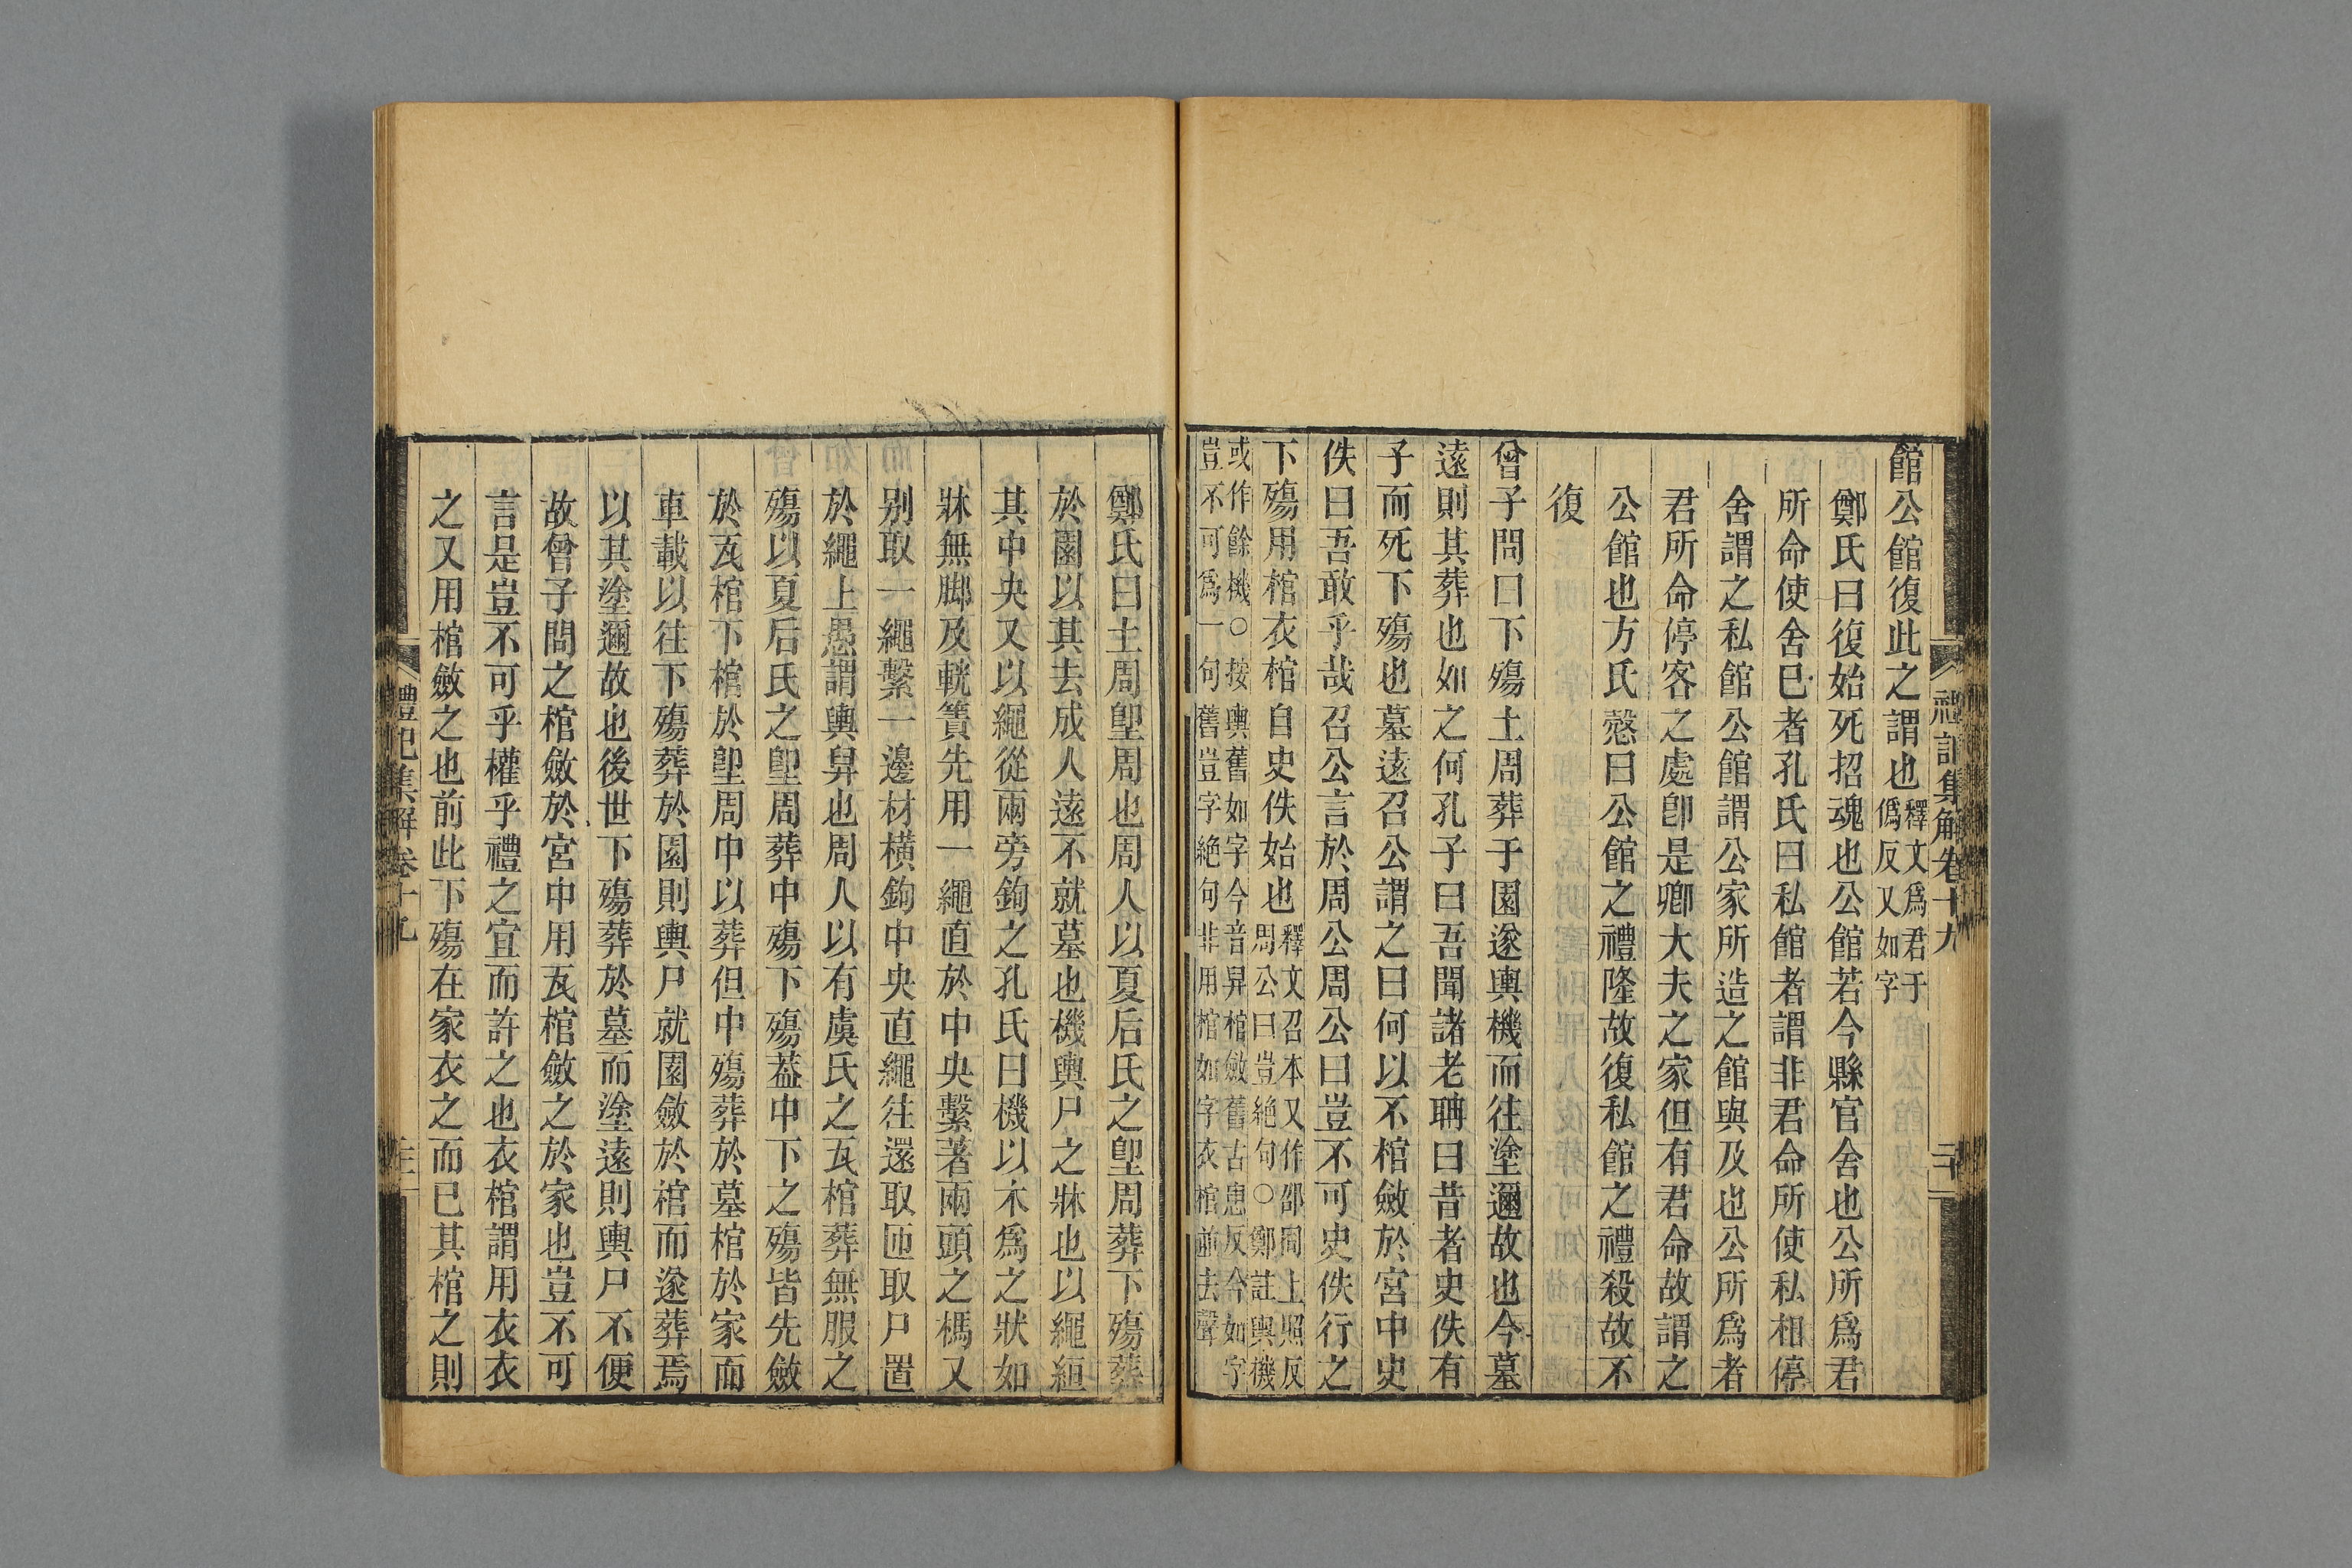 館公館復此之謂也釋文爲君于
僞反又如字
鄭氏曰復始死招魂也公館若今縣官舍也公所爲君
所命使舍巳者孔氏曰私館者謂非君命所使私相停
舍謂之私館公館謂公家所造之館與及也公所爲者
君所命停客之處卽是卿大夫之家但有君命故謂之
公館也方氏慤曰公館之禮隆故復私館之禮殺故不
復
曾子問曰下殤土周葬于園遂輿機而往塗邇故也今墓
遠則其葬也如之何孔子曰吾聞諸老聃曰昔者史佚有
子而死下殤也墓遠召公謂之曰何以不棺斂於宮中史
佚曰吾敢乎哉召公言於周公周公曰豈不可史佚行之
下殤用棺衣棺自史佚始也釋文召本又作邵同上照反
周公曰豈絶句○鄭註輿機
或作餘機○按輿舊如字今音舁棺斂舊古患反今如字
豈不可爲一句舊豈字絶句非用棺如字衣棺並去聲
鄭氏曰土周堲周也周人以夏后氏之堲周葬下殤葬
於園以其去成人遠不就墓也機輿尸之牀也以繩絙
其中央又以繩從兩旁鉤之孔氏曰機以木爲之狀如
牀無脚及輄簀先用一繩直於中央繫著兩頭之榪又
别取一繩繫一邊材橫鉤中央直繩往還取匝取尸置
於繩上愚謂輿舁也周人以有虞氏之瓦棺葬無服之
殤以夏后氏之堲周葬中殤下殤葢中下之殤皆先斂
於瓦棺下棺於堲周中以葬但中殤葬於墓棺於家而
車載以往下殤葬於園則輿尸就園斂於棺而遂葬焉
以其塗邇故也後世下殤葬於墓而塗遠則輿尸不便
故曾子問之棺斂於宮中用瓦棺斂之於家也豈不可
言是豈不可乎權乎禮之宜而許之也衣棺謂用衣衣
之又用棺斂之也前此下殤在家衣之而已其棺之則
禮記集解卷十九
二十
禮記集解卷十九